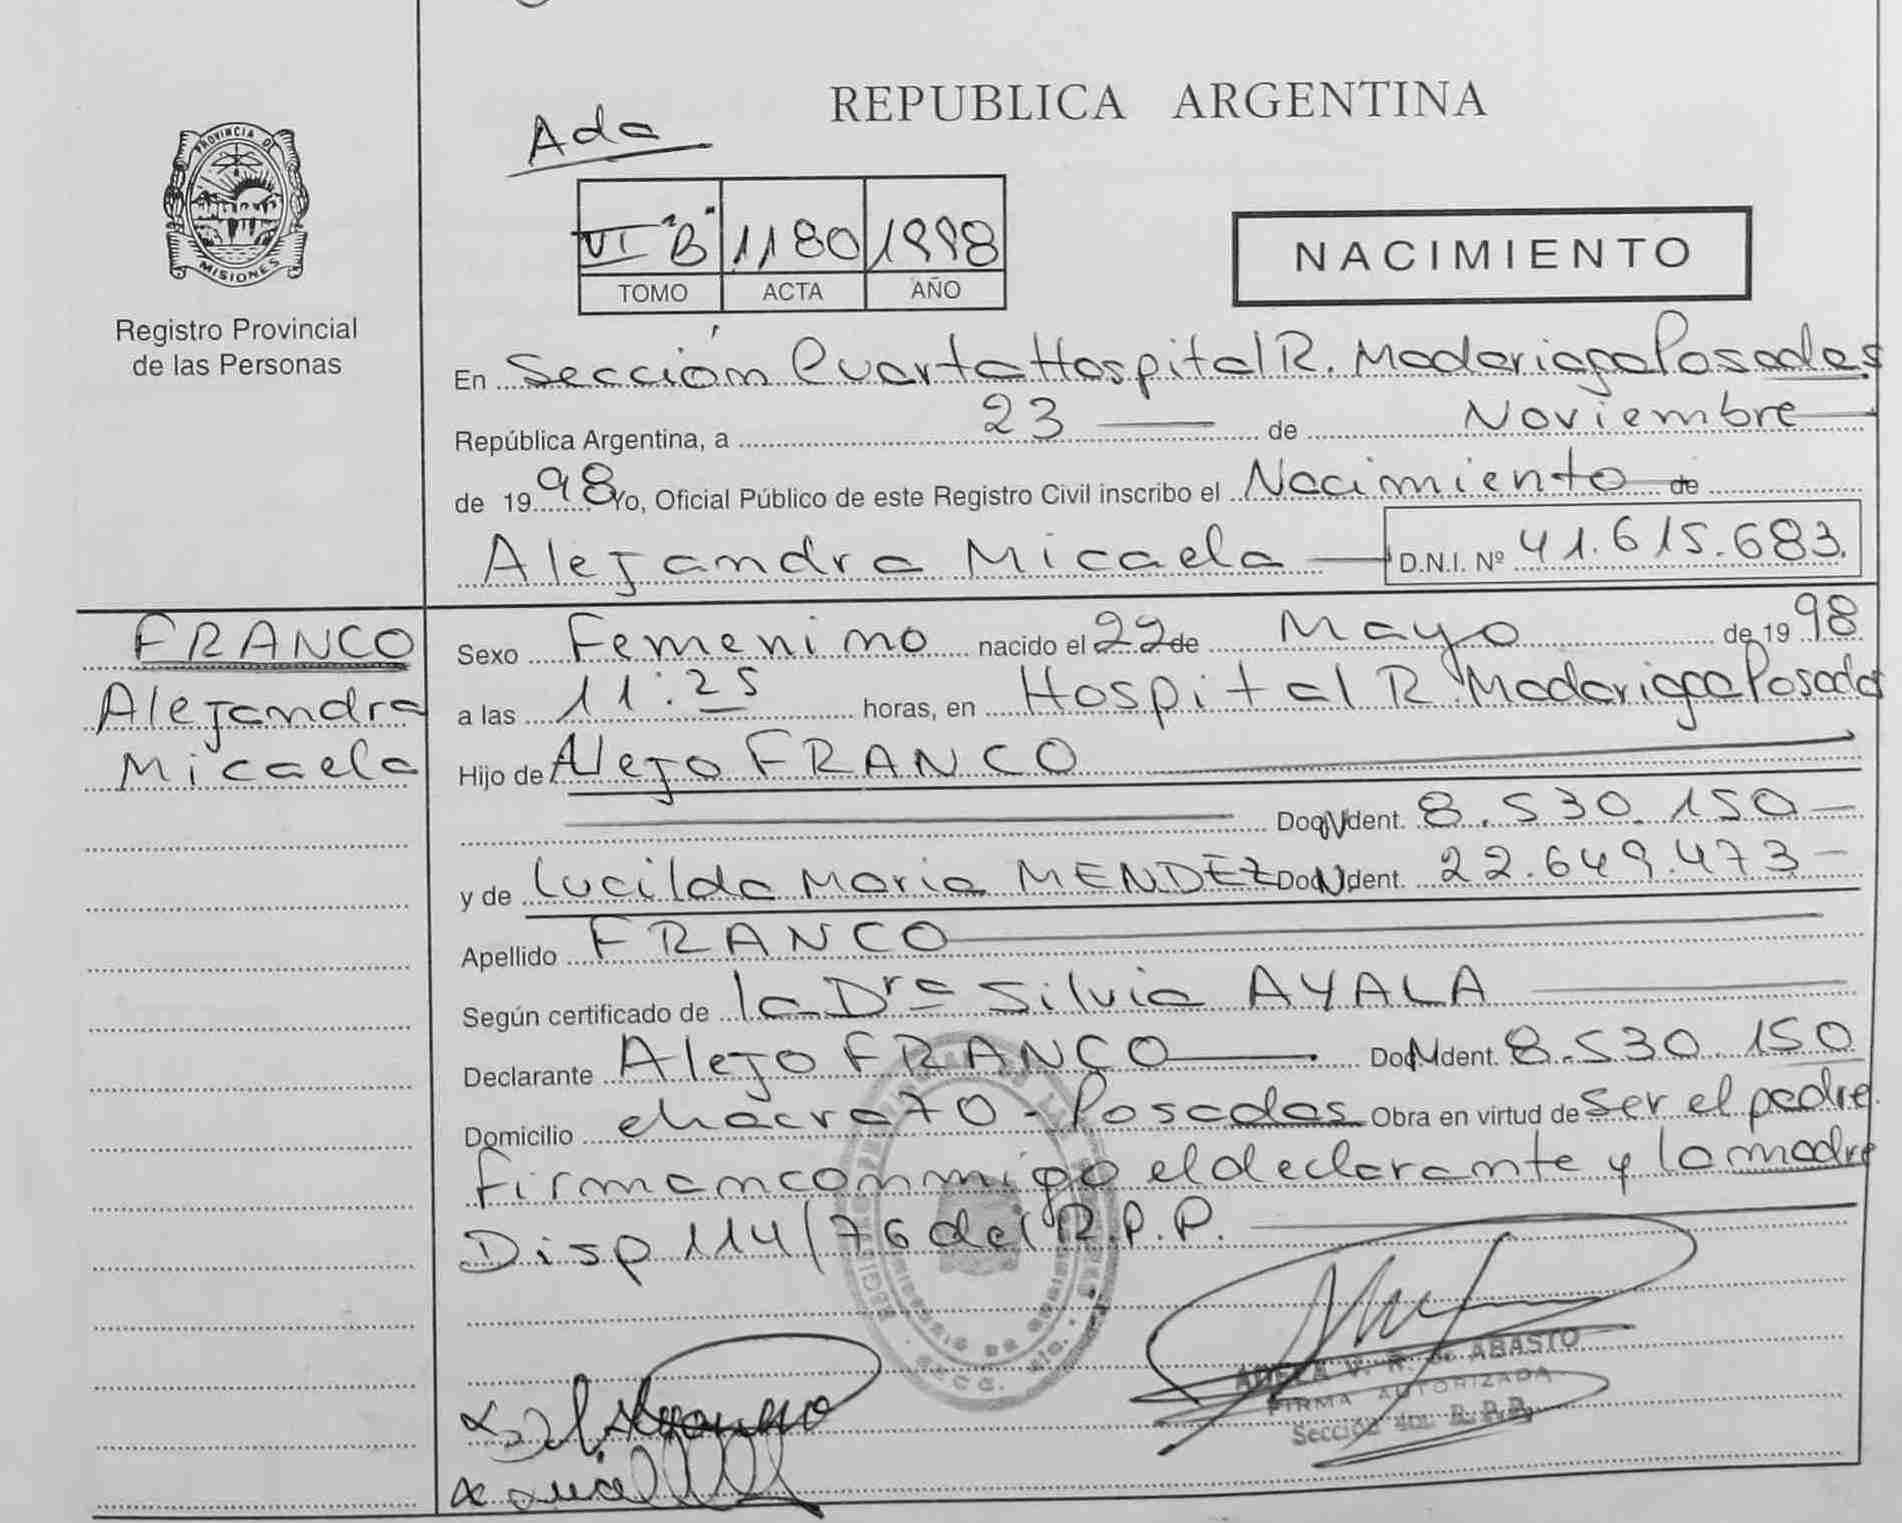 REPUBLICA ARGENTINA
Ada
VI "B" 1180 1998
TOMO ACTA AÑO
NACIMIENTO
PROVINCIA DE
MISIONES
Registro Provincial
de las Personas
En Sección Cuarta Hospital R. Madariaga Posadas
República Argentina, a 23 de Noviembre
de 1998 Yo, Oficial Público de este Registro Civil inscribo el Nacimiento de
Alejandra Micaela D.N.I. Nº 41.615.683.
FRANCO
Alejandra
Micaela
Sexo Femenino nacido el 22 de Mayo de 1998
a las 11:25 horas, en Hospital R. Madariaga Posadas
Hijo de Alejo FRANCO
Doc. Ident. 8.530.150
y de Lucilda Maria MENDEZ Doc. Ident. 22.649.473
Apellido FRANCO
Según certificado de la Dra Silvia AYALA
Declarante Alejo FRANCO Doc. Ident. 8.530.150
Domicilio chacra 70 - Posadas Obra en virtud de ser el padre.
Firman conmigo el declarante y la madre
Disp 114/76 del R.P.P.
ADELA V. R. de ABASTO
FIRMA AUTORIZADA
Sección 4ta. R.P.P.